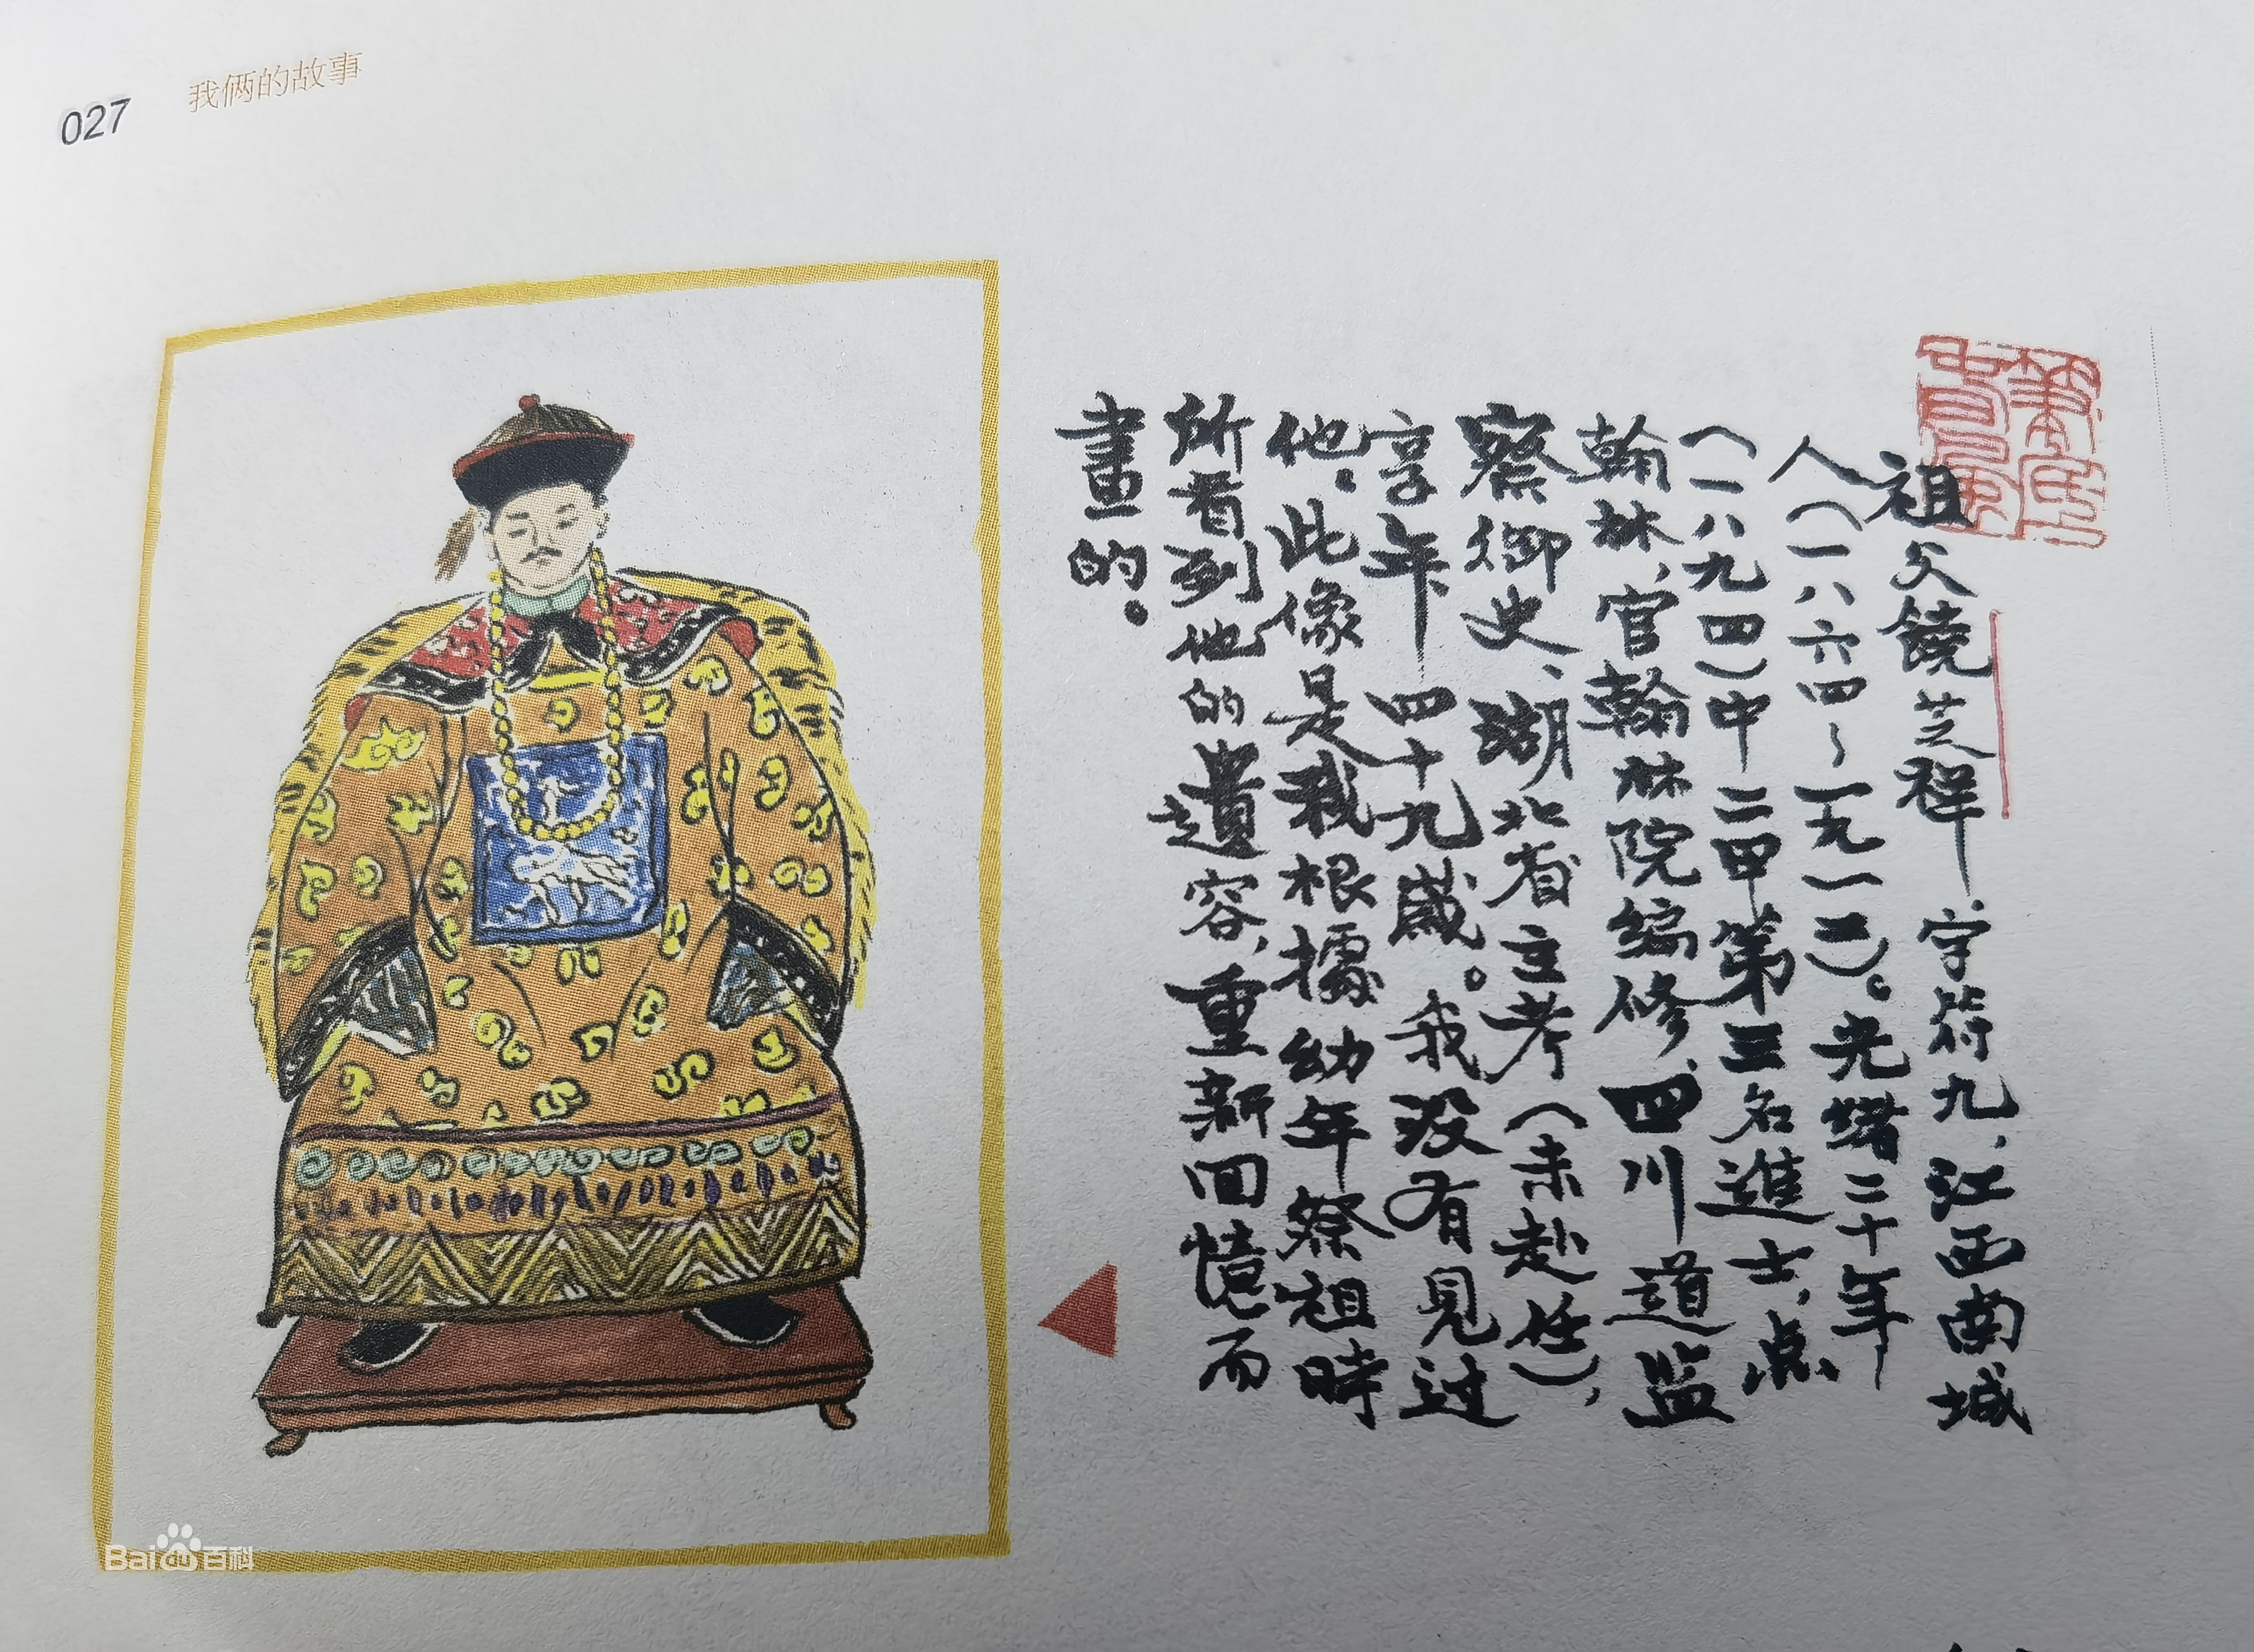 027
我俩的故事
祖父饒芝祥，字符九，江西南城
人（一八六四～一九一二）。光绪二十年
（一八九四）中二甲第三名進士，点
翰林，官翰林院编修、四川道监
察御史、湖北省主考（未赴任），
享年四十九歲。我没有見过
他。此像是我根據幼年祭祖時
所看到他的遺容，重新回憶而
畫的。
Bai百科